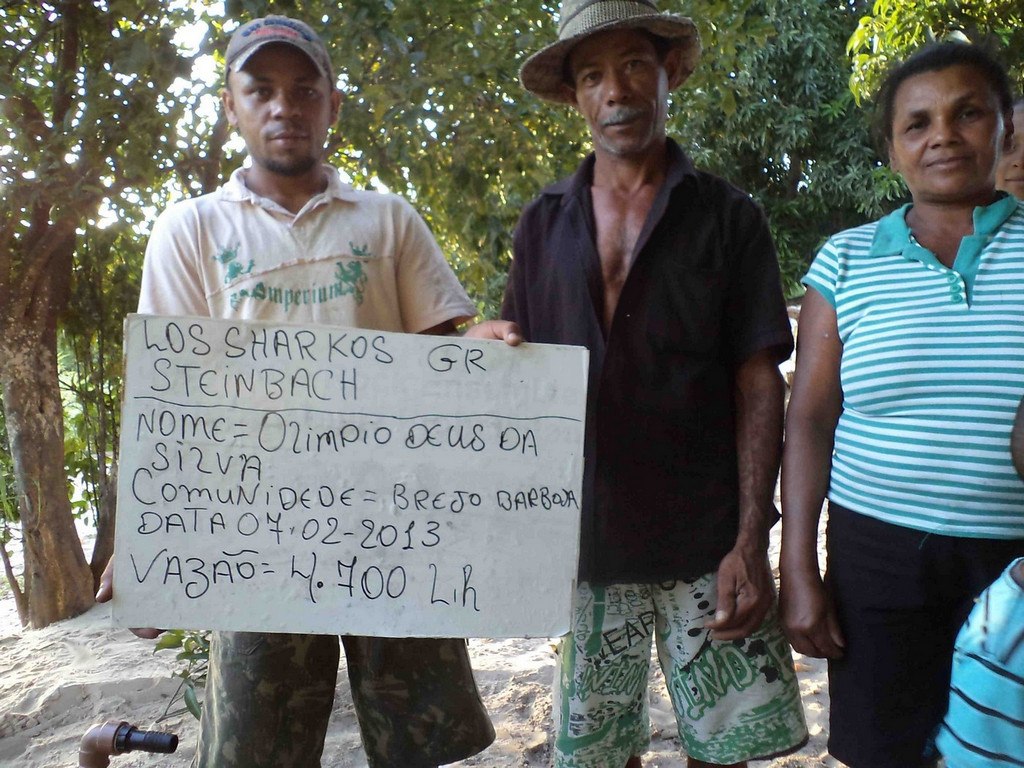 LOS SHARKOS GR
STEINBACH
NOME = OLIMPIO DEUS DA
SILVA
COMUNIDEDE = BREJO BARBOSA
DATA 07-02-2013
VAZÃO = 4.700 L.h
imperium
LEAF